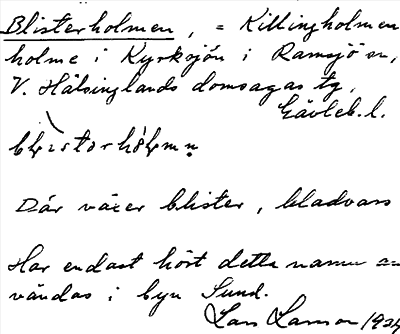 Blisterholmen, = Killingholmen
holme i Kyrksjön i Ramsjö sn,
V. Hälsinglands domsagas tg,
Gävleb. l.
Där växer blister, bladvass
Har endast hört detta namn an-
vändas i byn Sund.
Lars Larsson 1934